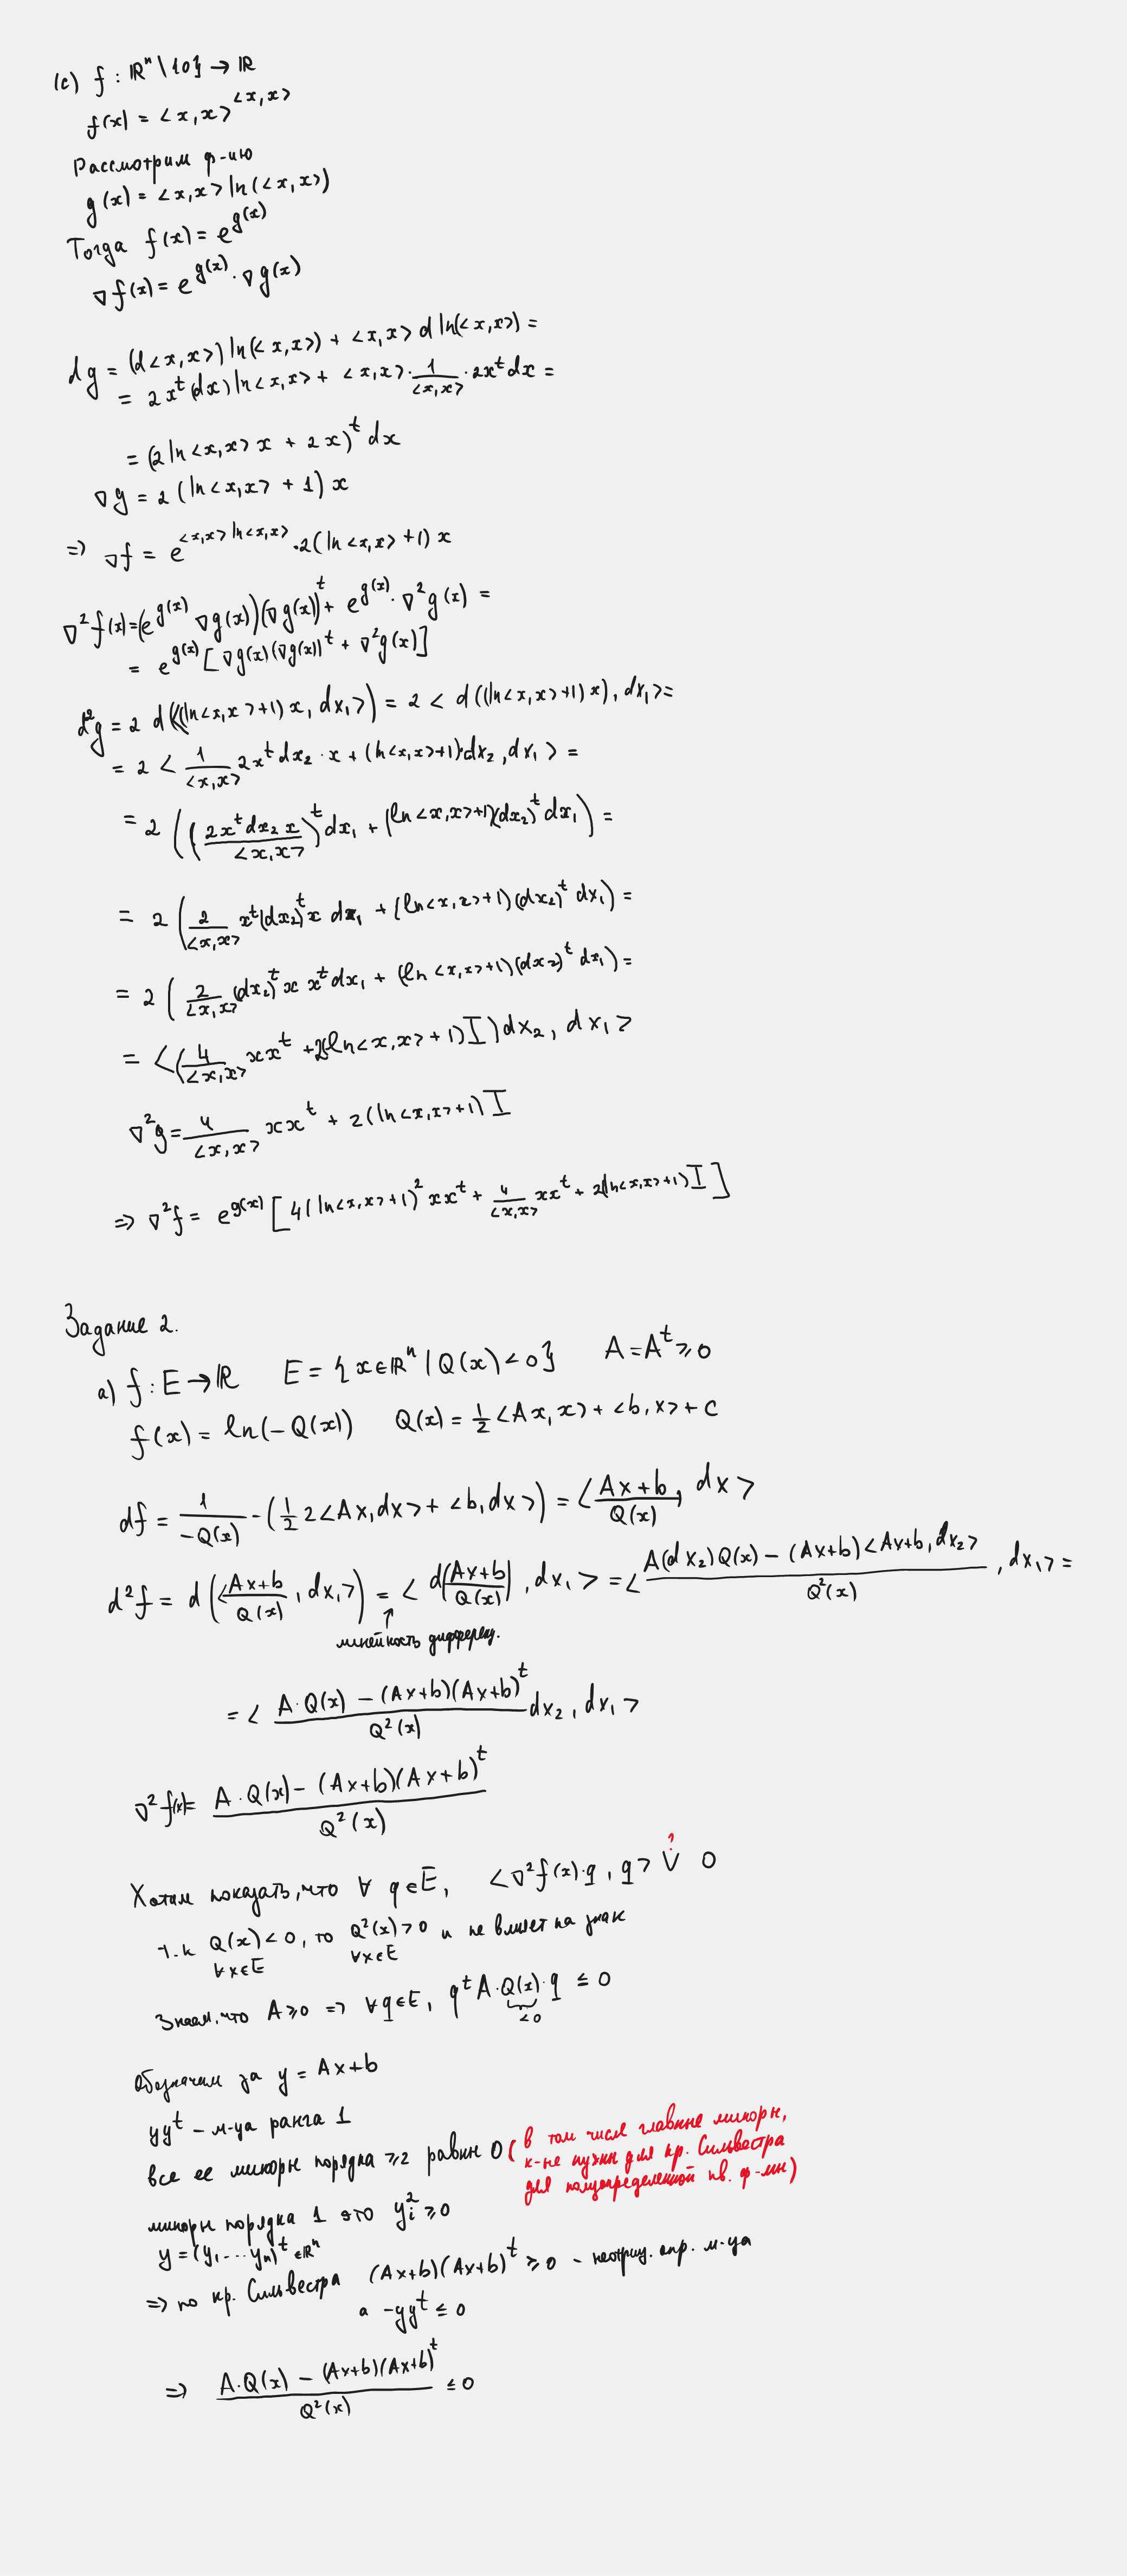 (c) f : ℝⁿ \ {0} → ℝ
f(x) = <x,x>^{<x,x>}
Рассмотрим ф-ию
g(x) = <x,x> ln(<x,x>)
Тогда f(x) = e^{g(x)}
∇f(x) = e^{g(x)} · ∇g(x)
dg = (d<x,x>) ln(<x,x>) + <x,x> d ln(<x,x>) =
= 2x^t (dx) ln<x,x> + <x,x> · 1/<x,x> · 2x^t dx =
= (2 ln<x,x> x + 2x)^t dx
∇g = 2 (ln<x,x> + 1) x
=> ∇f = e^{<x,x> ln<x,x>} · 2(ln<x,x> + 1) x
∇²f(x) = (e^{g(x)} ∇g(x))(∇g(x))^t + e^{g(x)} · ∇²g(x) =
= e^{g(x)} [∇g(x)(∇g(x))^t + ∇²g(x)]
d²g = 2 d(<(ln<x,x>+1) x, dx₁>) = 2 < d((ln<x,x>+1) x), dx₁> =
= 2 < 1/<x,x> 2x^t dx₂ · x + (ln<x,x>+1) dx₂, dx₁ > =
= 2 ((2x^t dx₂ x / <x,x>)^t dx₁ + (ln<x,x>+1)(dx₂)^t dx₁) =
= 2 (2/<x,x> x^t (dx₂)^t x dx₁ + (ln<x,x>+1)(dx₂)^t dx₁) =
= 2 (2/<x,x> (dx₂)^t x x^t dx₁ + (ln<x,x>+1)(dx₂)^t dx₁) =
= <(4/<x,x> xx^t + 2(ln<x,x>+1) I) dx₂, dx₁ >
∇²g = 4/<x,x> xx^t + 2(ln<x,x>+1) I
=> ∇²f = e^{g(x)} [4(ln<x,x>+1)² xx^t + 4/<x,x> xx^t + 2(ln<x,x>+1) I]
Задание 2.
a) f : E → ℝ E = {x∈ℝⁿ | Q(x) < 0} A = A^t ≥ 0
f(x) = ln(-Q(x)) Q(x) = ½<Ax,x> + <b,x> + c
df = 1/(-Q(x)) · -(½ 2<Ax,dx> + <b,dx>) = <(Ax+b)/Q(x), dx>
d²f = d(<(Ax+b)/Q(x), dx₁>) = < d((Ax+b)/Q(x)), dx₁ > = < (A(dx₂)Q(x) - (Ax+b)<Ax+b, dx₂>)/Q²(x), dx₁> =
↑
линейность дифференц.
= < (A·Q(x) - (Ax+b)(Ax+b)^t)/Q²(x) dx₂, dx₁ >
∇²f(x) = (A·Q(x) - (Ax+b)(Ax+b)^t)/Q²(x)
?
Хотим показать, что ∀ q∈E, <∇²f(x)·q, q> ∨ 0
т.к Q(x) < 0, то Q²(x) > 0 и не влияет на знак
∀x∈E ∀x∈E
Знаем, что A ≥ 0 => ∀q∈E, q^t A·Q(x)·q ≤ 0
<0
Обозначим за y = Ax+b
yy^t – м-ца ранга 1
все ее миноры порядка ≥2 равны 0 (в том числе главные миноры,
к-ые нужны для кр. Сильвестра
для полуопределенной кв. ф-мы)
миноры порядка 1 это y_i² ≥ 0
y = (y₁ ... yₙ)^t ∈ℝⁿ
=> по кр. Сильвестра (Ax+b)(Ax+b)^t ≥ 0 - неотриц. опр. м-ца
а -yy^t ≤ 0
=> (A·Q(x) - (Ax+b)(Ax+b)^t)/Q²(x) ≤ 0